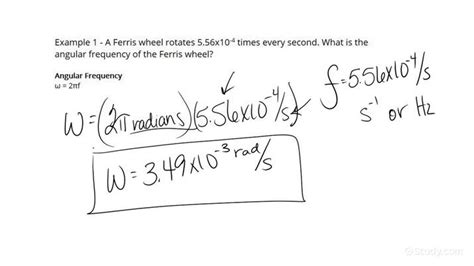 Example 1 - A Ferris wheel rotates 5.56x10⁻⁴ times every second. What is the
angular frequency of the Ferris wheel?
Angular Frequency
ω = 2πf
ω = (2π radians)(5.56x10⁻⁴/s)
f = 5.56x10⁻⁴/s
s⁻¹ or Hz
ω = 3.49x10⁻³ rad/s
Study.com